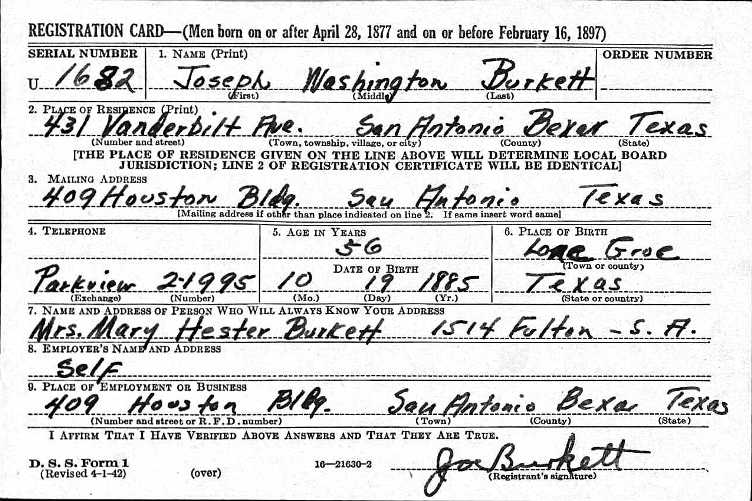 REGISTRATION CARD—(Men born on or after April 28, 1877 and on or before February 16, 1897)
SERIAL NUMBER 1. NAME (Print) ORDER NUMBER
U 1682 Joseph Washington Burkett
(First) (Middle) (Last)
2. PLACE OF RESIDENCE (Print)
431 Vanderbilt Ave. San Antonio Bexar Texas
(Number and street) (Town, township, village, or city) (County) (State)
[THE PLACE OF RESIDENCE GIVEN ON THE LINE ABOVE WILL DETERMINE LOCAL BOARD
JURISDICTION; LINE 2 OF REGISTRATION CERTIFICATE WILL BE IDENTICAL]
3. MAILING ADDRESS
409 Houston Bldg. San Antonio Texas
[Mailing address if other than place indicated on line 2. If same insert word same]
4. TELEPHONE 5. AGE IN YEARS 6. PLACE OF BIRTH
56 Lone Groe
DATE OF BIRTH (Town or county)
Parkview 2-1995 10 19 1885 Texas
(Exchange) (Number) (Mo.) (Day) (Yr.) (State or country)
7. NAME AND ADDRESS OF PERSON WHO WILL ALWAYS KNOW YOUR ADDRESS
Mrs. Mary Hester Burkett 1514 Fulton - S. A.
8. EMPLOYER'S NAME AND ADDRESS
Self
9. PLACE OF EMPLOYMENT OR BUSINESS
409 Houston Bldg. San Antonio Bexar Texas
(Number and street or R. F. D. number) (Town) (County) (State)
I AFFIRM THAT I HAVE VERIFIED ABOVE ANSWERS AND THAT THEY ARE TRUE.
D. S. S. Form 1
(Revised 4-1-42) (over) 16—21630-2 Joe Burkett
(Registrant's signature)